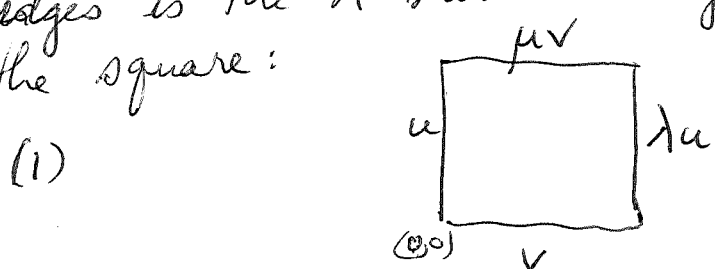 edges is the
the square:
μv
u
λu
(1)
(0,0)
v